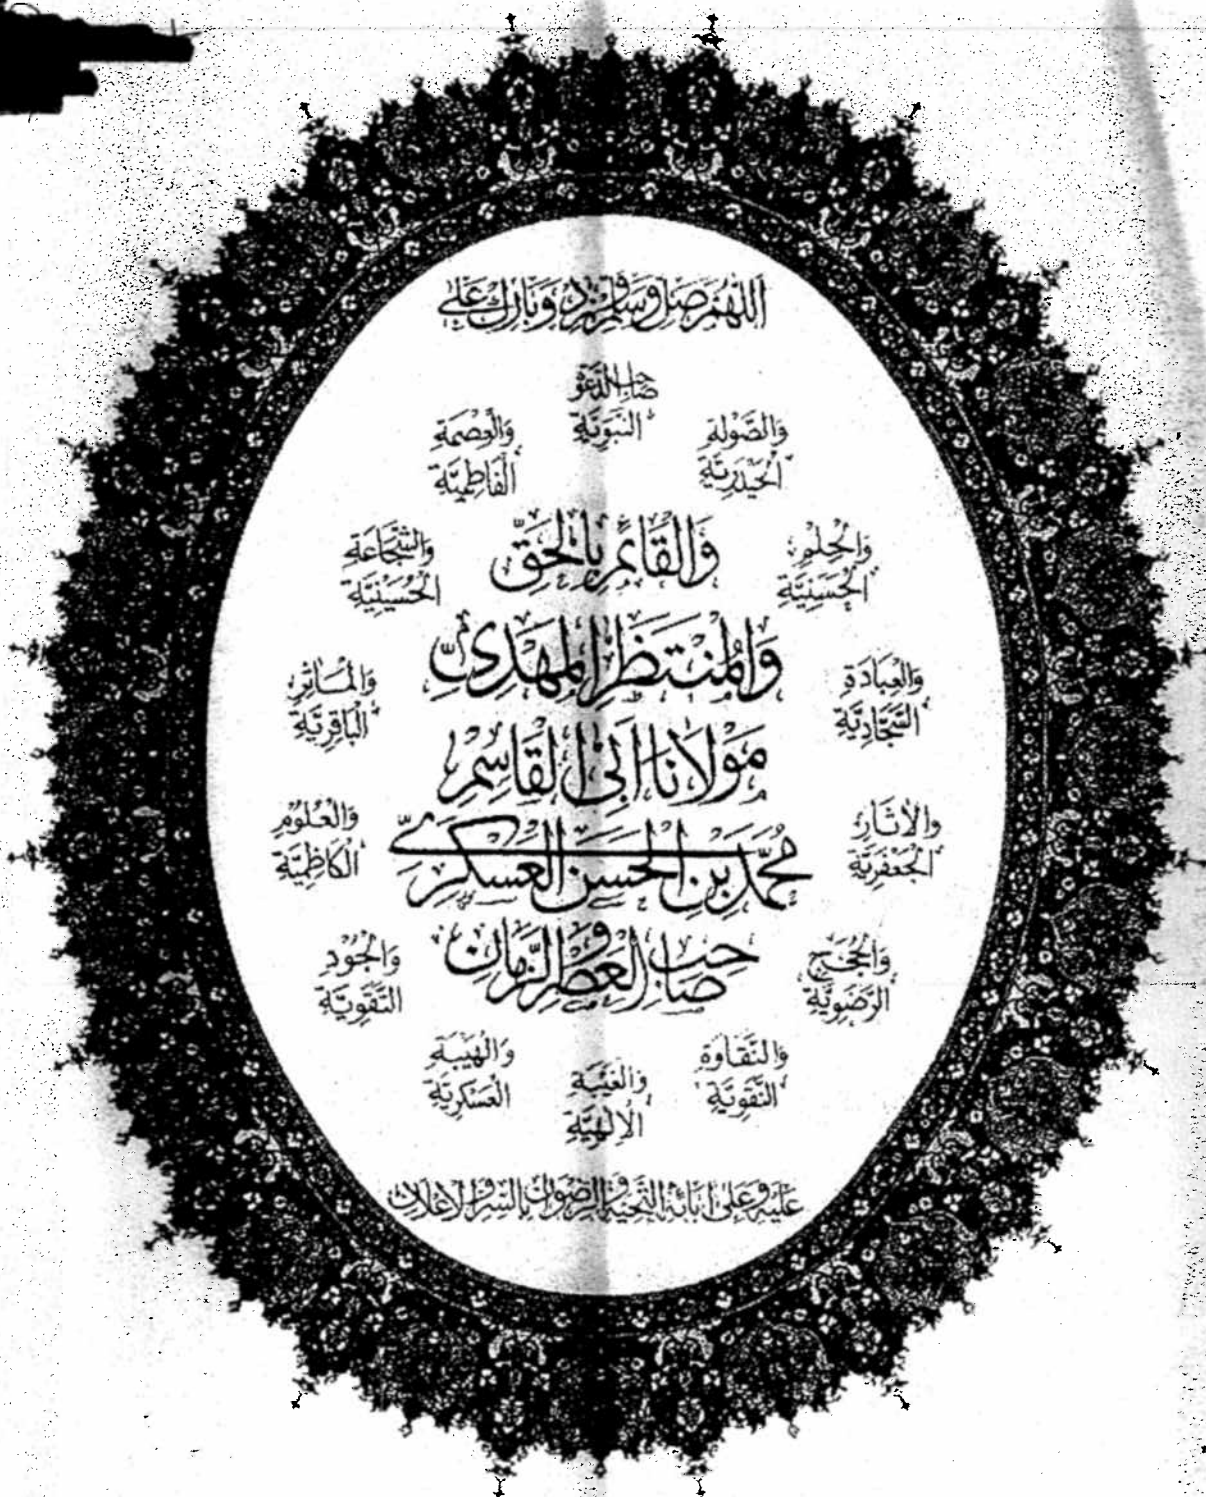 اَللّٰهُمَّ صَلِّ وَسَلِّمْ وَزِدْ وَبَارِكْ عَلٰی
صَاحِبِ الدَّعْوَةِ
النَّبَوِيَّةِ
وَالصَّوْلَةِ
الْحَيْدَرِيَّةِ
وَالْعِصْمَةِ
الْفَاطِمِيَّةِ
وَالْحِلْمِ
الْحَسَنِيَّةِ
وَالشَّجَاعَةِ
الْحُسَيْنِيَّةِ
وَالْعِبَادَةِ
السَّجَّادِيَّةِ
وَالْمَـاٰثِرِ
الْبَاقِرِيَّةِ
وَالْاٰثَارِ
الْجَعْفَرِيَّةِ
وَالْعُلُوْمِ
الْكَاظِمِيَّةِ
وَالْحُجَجِ
الرَّضَوِيَّةِ
وَالْجُوْدِ
التَّقَوِيَّةِ
وَالنَّقَاوَةِ
النَّقَوِيَّةِ
وَالْهَيْبَةِ
الْعَسْكَرِيَّةِ
وَالْغَيْبَةِ
الْاِلٰهِيَّةِ
وَالْقَائِمِ بِالْحَقِّ
وَالْمُنْتَظَرِ الْمَهْدِيِّ
مَوْلَانَا اَبِی الْقَاسِمِ
مُحَمَّدِ بْنِ الْحَسَنِ الْعَسْكَرِيِّ
صَاحِبِ الْعَصْرِ وَالزَّمَانِ
عَلَيْهِ وَعَلٰى اٰبَائِهِ التَّحِيَّةُ وَالرِّضْوَانُ بِالسِّرِّ وَالْاِعْلَانِ